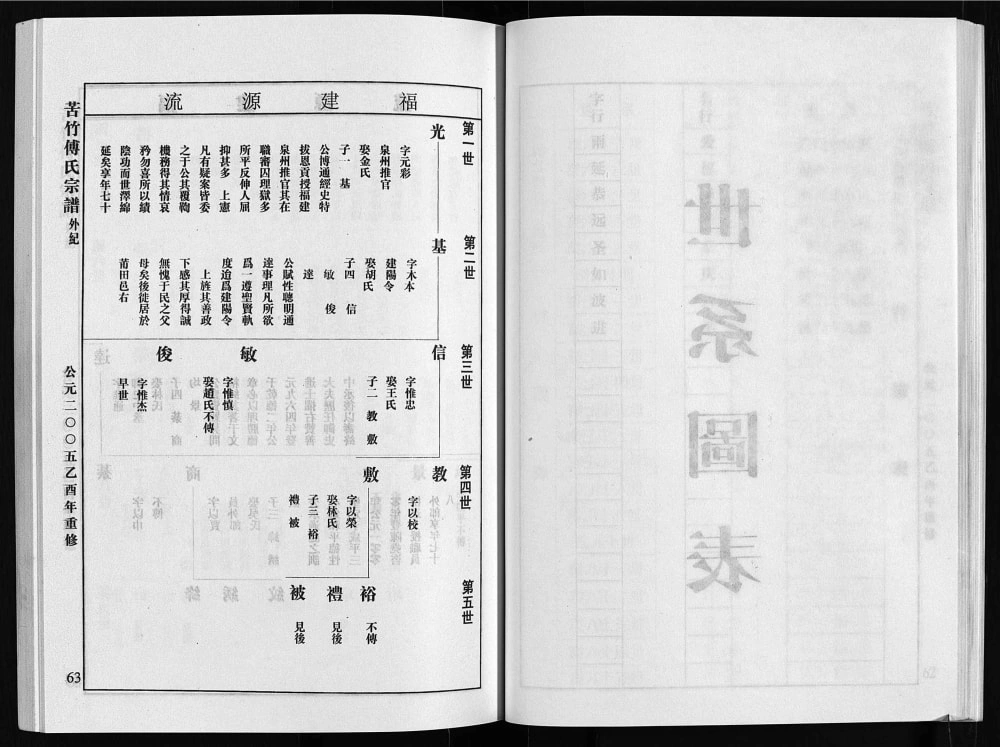 福建源流
第一世
光
字元彩
泉州推官
娶金氏
子一 基
公博通經史特
拔恩貢授福建
泉州推官其在
職審囚理獄多
所平反伸人屈
抑甚多 上憲
凡有疑案皆委
之于公其覆鞫
機務得其情哀
矜勿喜所以績
陰功而世澤綿
延矣享年七十
第二世
基
字本本
建陽令
娶胡氏
子四 信
敏 俊
達
公賦性聰明通
達事理凡所欲
爲一遵聖賢軌
度迨爲建陽令
上旌其善政
下感其厚得誠
無愧于民之父
母矣後徙居於
莆田邑右
第三世
信
字惟忠
娶王氏
子二 教 敷
敏
字惟慎
娶趙氏不傳
俊
字惟杰
早世
第四世
教
字以校
敷
字以榮
娶林氏
子三 裕
禮 被
第五世
裕
不傳
禮
見後
被
見後
苦竹傅氏宗譜 外紀
公元二００五乙酉年重修
63
世系圖表
62